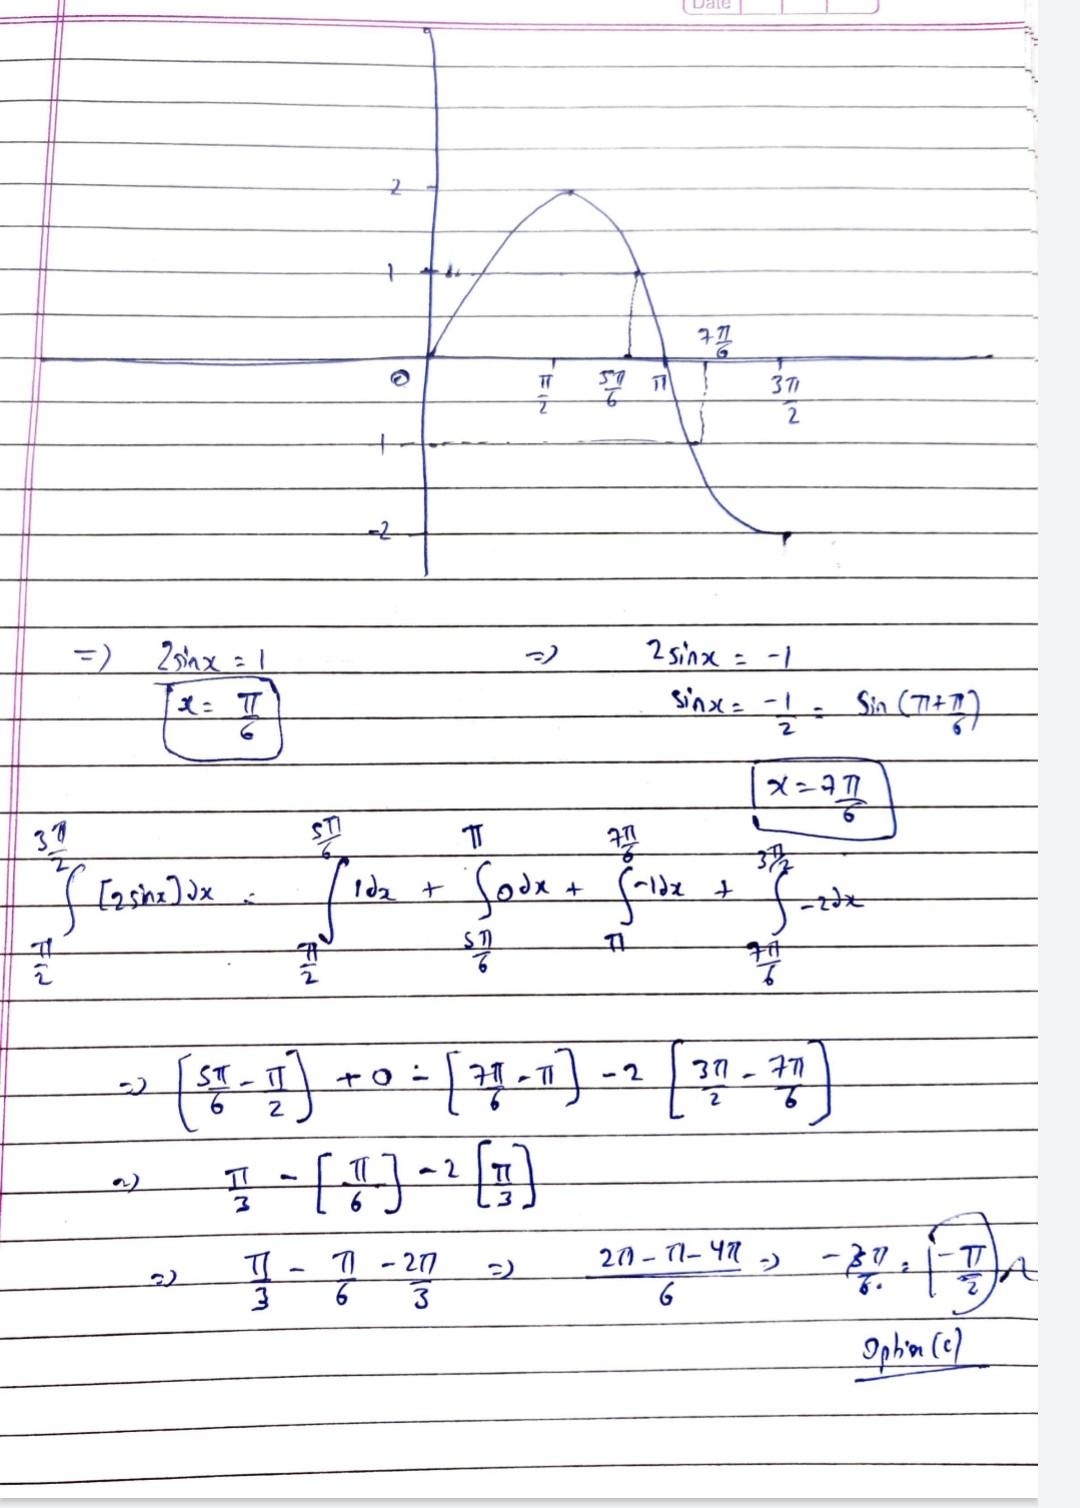 Date
2
1
7π/6
0 π/2 5π/6 π 3π/2
1
-2
=) 2sinx = 1 =) 2sinx = -1
x = π/6 sinx = -1/2 = sin(π+π/6)
x = 7π/6
∫_{π/2}^{3π/2} [2sinx]dx = ∫_{π/2}^{5π/6} 1dx + ∫_{5π/6}^{π} 0dx + ∫_{π}^{7π/6} -1dx + ∫_{7π/6}^{3π/2} -2dx
=> [5π/6 - π/2] + 0 - [7π/6 - π] - 2 [3π/2 - 7π/6]
=) π/3 - [π/6] - 2 [π/3]
=) π/3 - π/6 - 2π/3 =) 2π - π - 4π/6 =) -3π/6 = -π/2
Option (c)